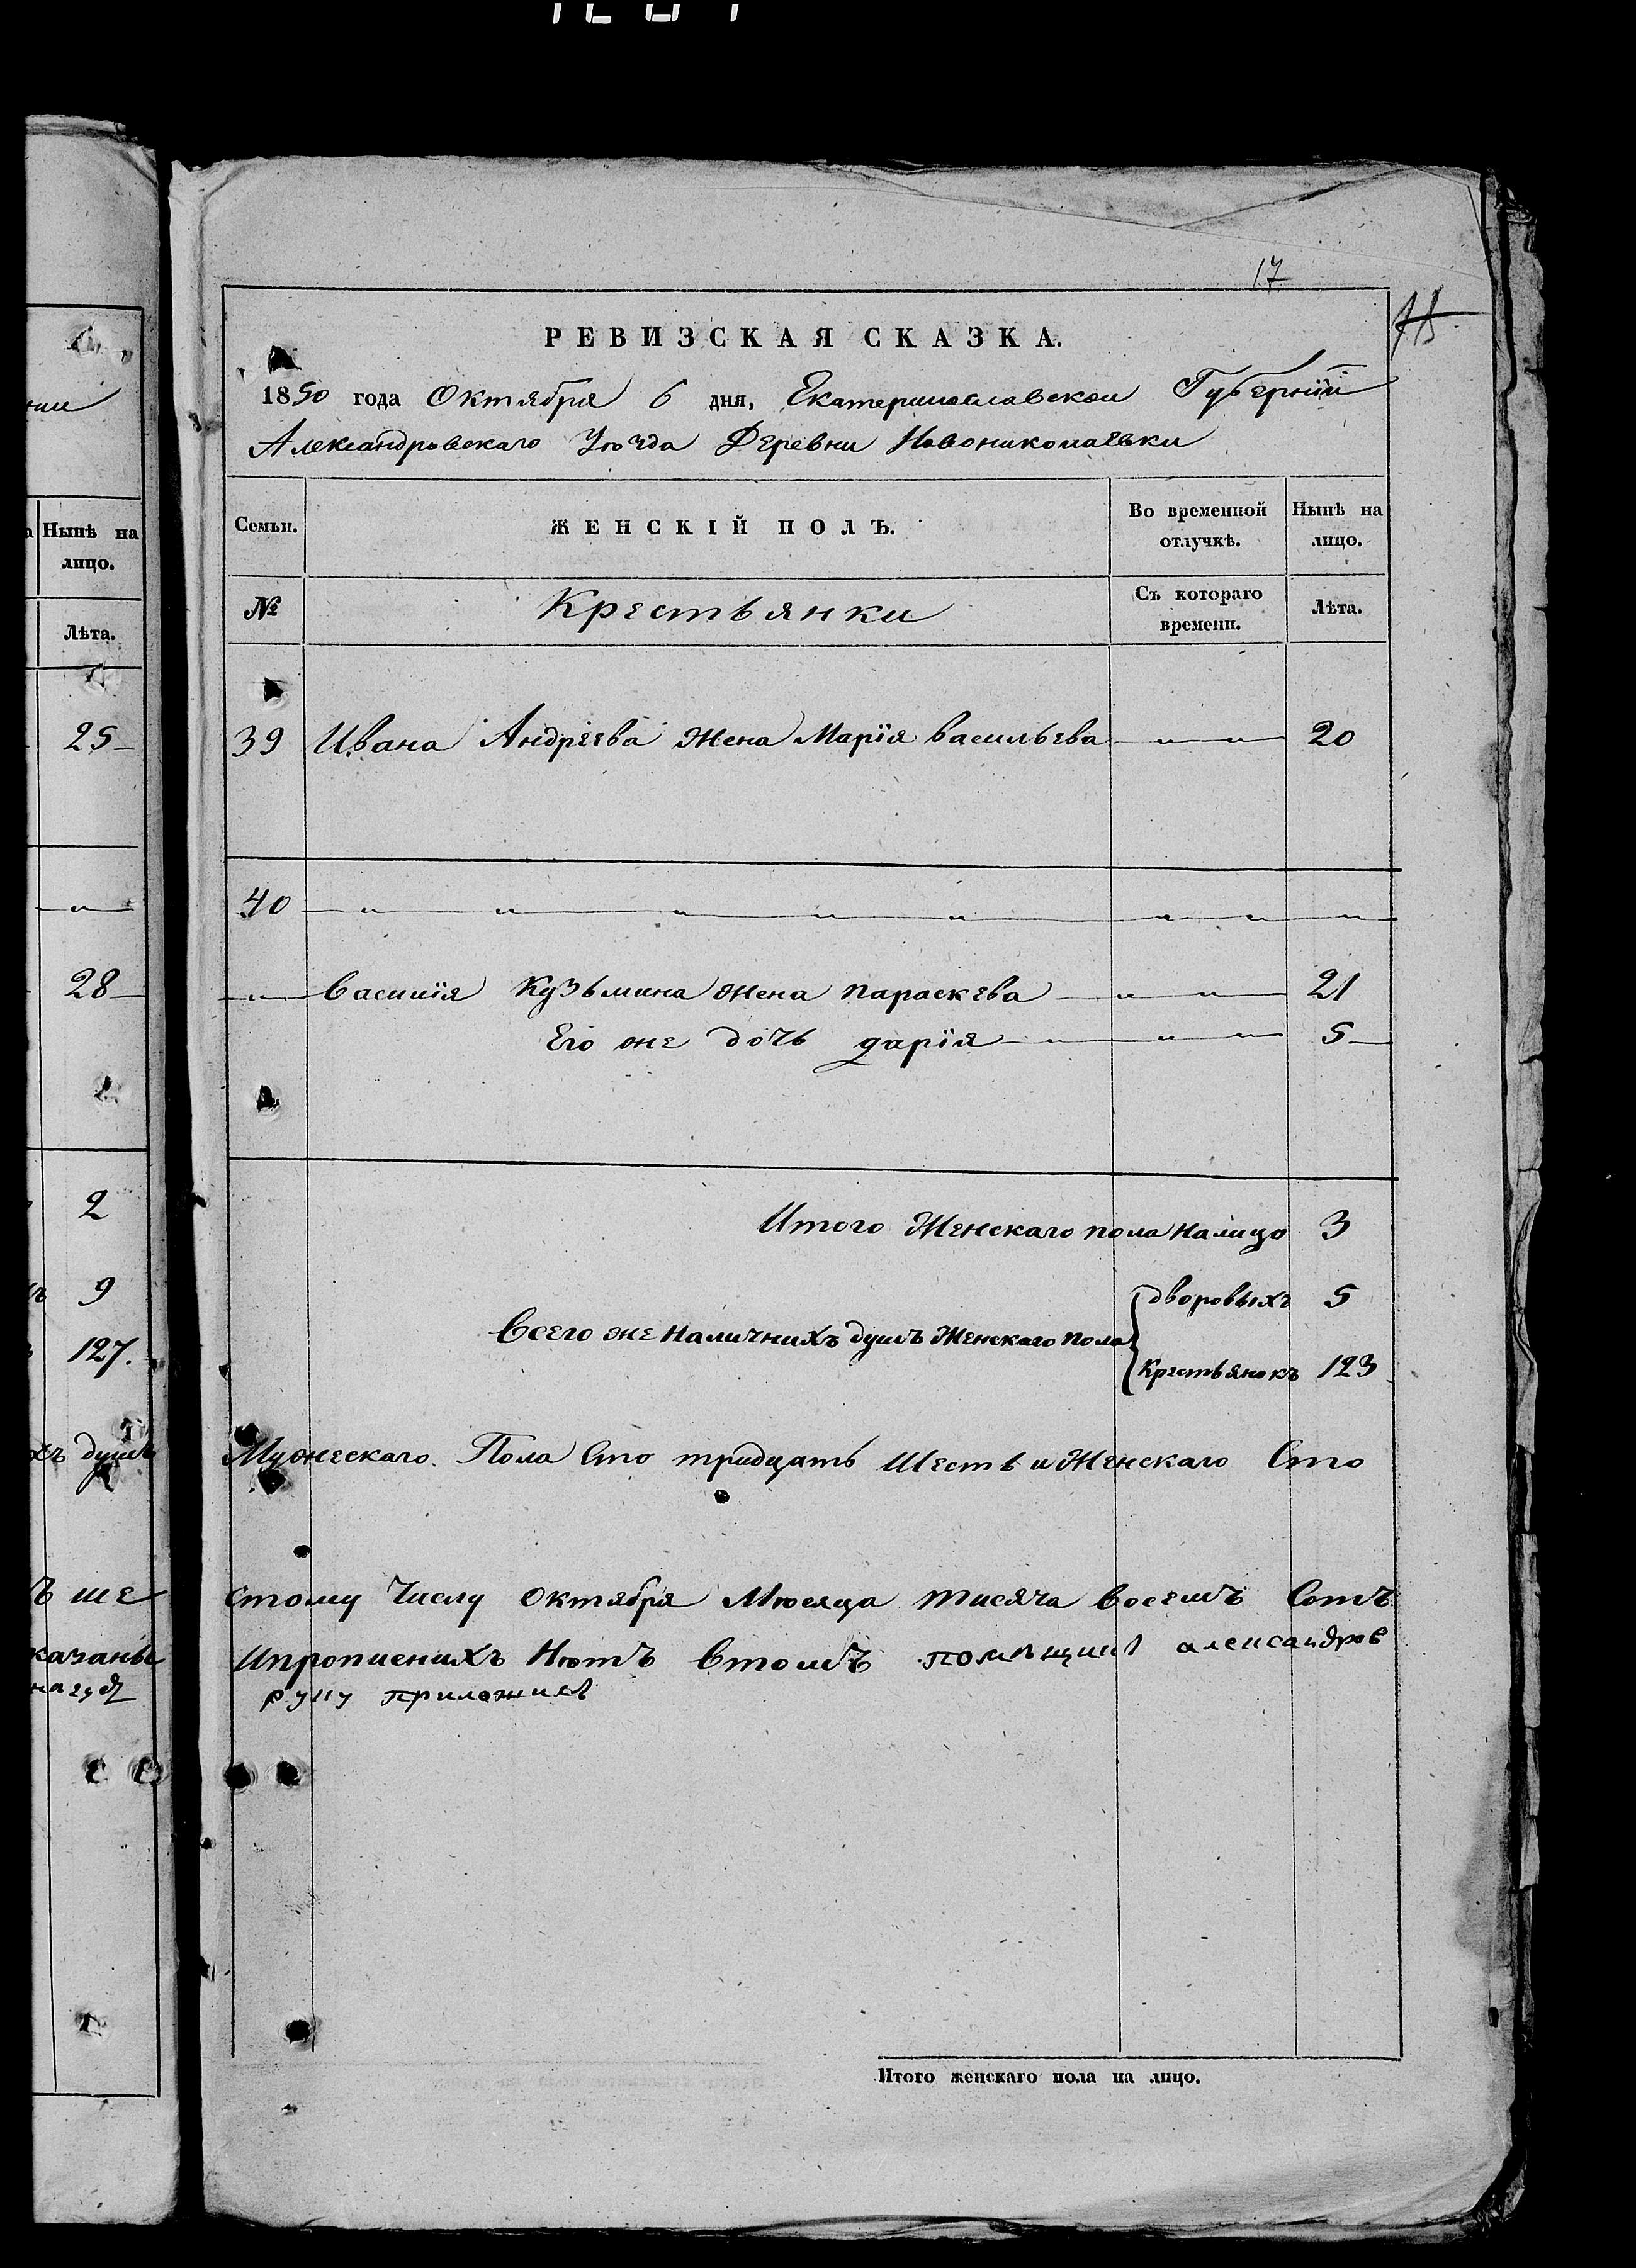 17
РЕВИЗСКАЯ СКАЗКА.
1850 года Октября 6 дня, Екатеринославской Губернїй
Александровскаго Уѣзда Деревни Новониколаевки
Семьи. ЖЕНСКІЙ ПОЛЪ. Во временной отлучкѣ. Нынѣ на лицо.
№ Крестьянки Съ котораго времени. Лѣта.
39 Ивана Андреева жена Марїя Васильева 20
40
Василїя Кузьмина жена Параскева 21
Его же дочь дарїя 5
Итого Женскаго пола налицо 3
дворовыхъ 5
Всего же Наличнихъ душъ Женскаго пола
Крестьянокъ 123
Мужескаго Пола Сто тридцать Шесть и Женскаго Сто
стому Числу Октября Мѣсяца тисяча восемъ Сотъ
Ипрописнихъ Нѣтъ Втомъ помѣщикъ александров
руку приложилъ
Итого женскаго пола на лицо.
Нынѣ на
лицо.
Лѣта.
25
28
2
9
127.
хъ душъ
ъ ше
казаны